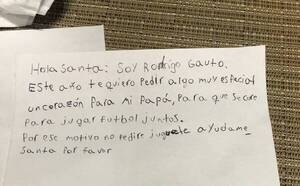 Hola Santa: Soy Rodrigo Gauto.
Este año te quiero Pedir algo muy especial
un corazón Para mi Papá, Para que se cure
Para jugar futbol juntos.
Por ese motivo no pedire juguete ayudame
Santa Por favor